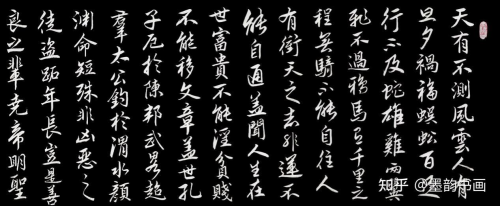 天有不測風雲人有
旦夕禍福蜈蚣百足
行不及蛇雄雞兩翼
飛不過鴉馬有千里之
程無騎不能自往人
有衝天之志非運不
能自通蓋聞人生在
世富貴不能淫貧賤
不能移文章蓋世孔
子厄於陳邦武略超
羣太公釣於渭水顏
淵命短殊非凶惡之
徒盜跖年長豈是善
良之輩堯帝明聖
知乎 @墨韵书画